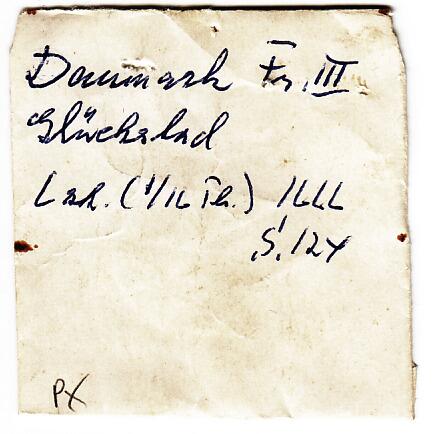 Danmark Fr. III
Glückstad
2 sk. (1/16 Th.) 1666
S. 124
PX